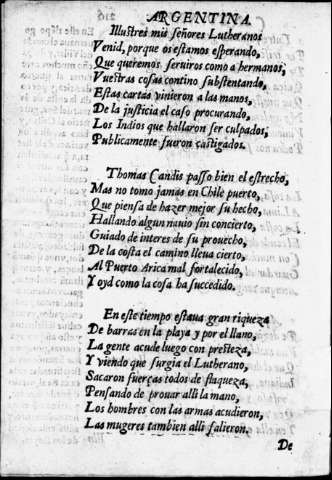 ARGENTINA.
Illustres mis señores Lutheranos
Venid, porque os estamos esperando,
Que queremos seruiros como a hermanos,
Vuestras cosas contino substentando,
Estas cartas vinieron a las manos,
De la justicia el caso procurando,
Los Indios que hallaron ser culpados,
Publicamente fueron castigados.
Thomas Candis passo bien el estrecho,
Mas no tomo jamas en Chile puerto,
Que piensa de hazer mejor su hecho,
Hallando algun nauio sin concierto,
Guiado de interes de su prouecho,
De la costa el camino lleua cierto,
Al Puerto Arica mal fortalecido,
Y oyd como la cosa ha succedido.
En este tiempo estaua gran riqueza
De barras en la playa y por el llano,
La gente acude luego con presteza,
Y viendo que surgia el Lutherano,
Sacaron fuerças todos de flaqueza,
Pensando de prouar alli la mano,
Los hombres con las armas acudieron,
Las mugeres tambien alli salieron.
De